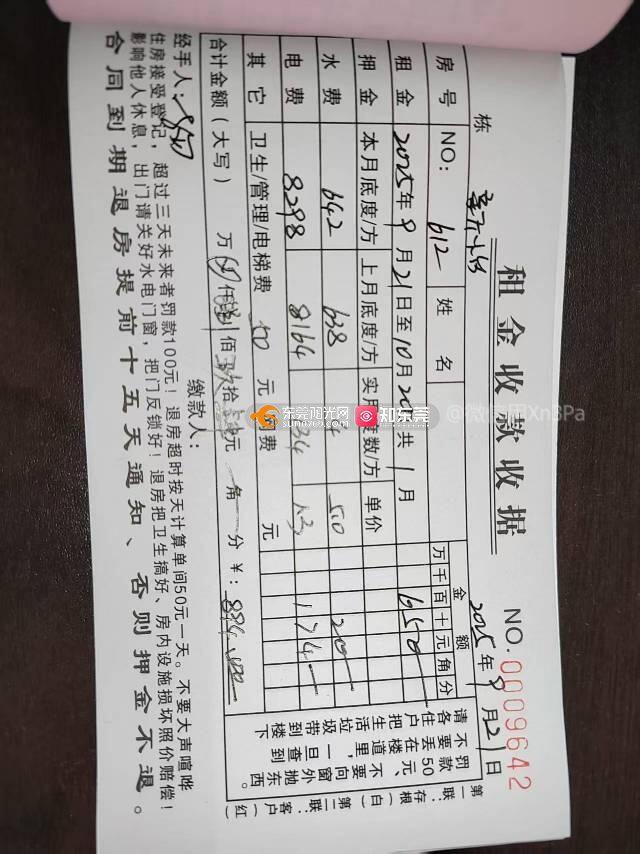 租金收款收据
NO. 0009642
栋
2025年9月21日
房号 NO: 612 姓名
金额
万千百十元角分
租金 2025年9月21日至10月20 共1月 650
押金 本月底度/方 上月底度/方 实用度数/方 单价
水费 642 638 4 5.0 20
电费 8298 8164 134 1.3 174
其它 卫生/管理/电梯费 50 元 费 元
合计金额(大写) 万 仟 佰 拾 元 角 分 ¥: 894.00
经手人: 缴款人:
住房接受登记,超过三天未来者罚款100元!退房超时按天计算单间50元一天。不要大声喧哗
影响他人休息,出门请关好水电门窗,把门反锁好!退房把卫生搞好、房内设施损坏照价赔偿!
合同到期退房提前十五天通知、否则押金不退。
请各住户把生活垃圾带到楼下
不要丢在楼道里,一旦查到
罚款50元、不要向窗外抛东西。
第一联:存根(白) 第二联:客户(红)
东莞阳光网
sun0769.com
知东莞